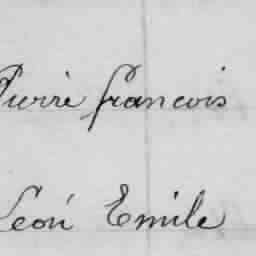 Pierre francois
Leon Emile